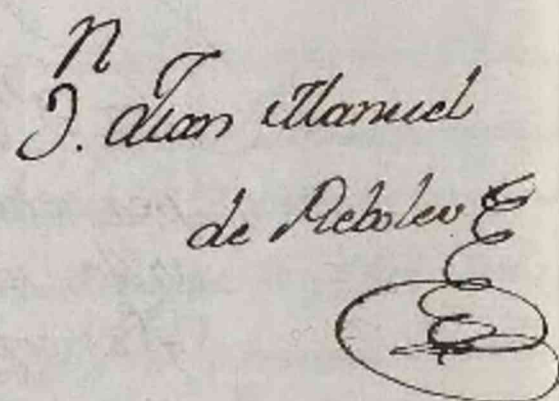 D.ⁿ Juan Manuel
de Reboles